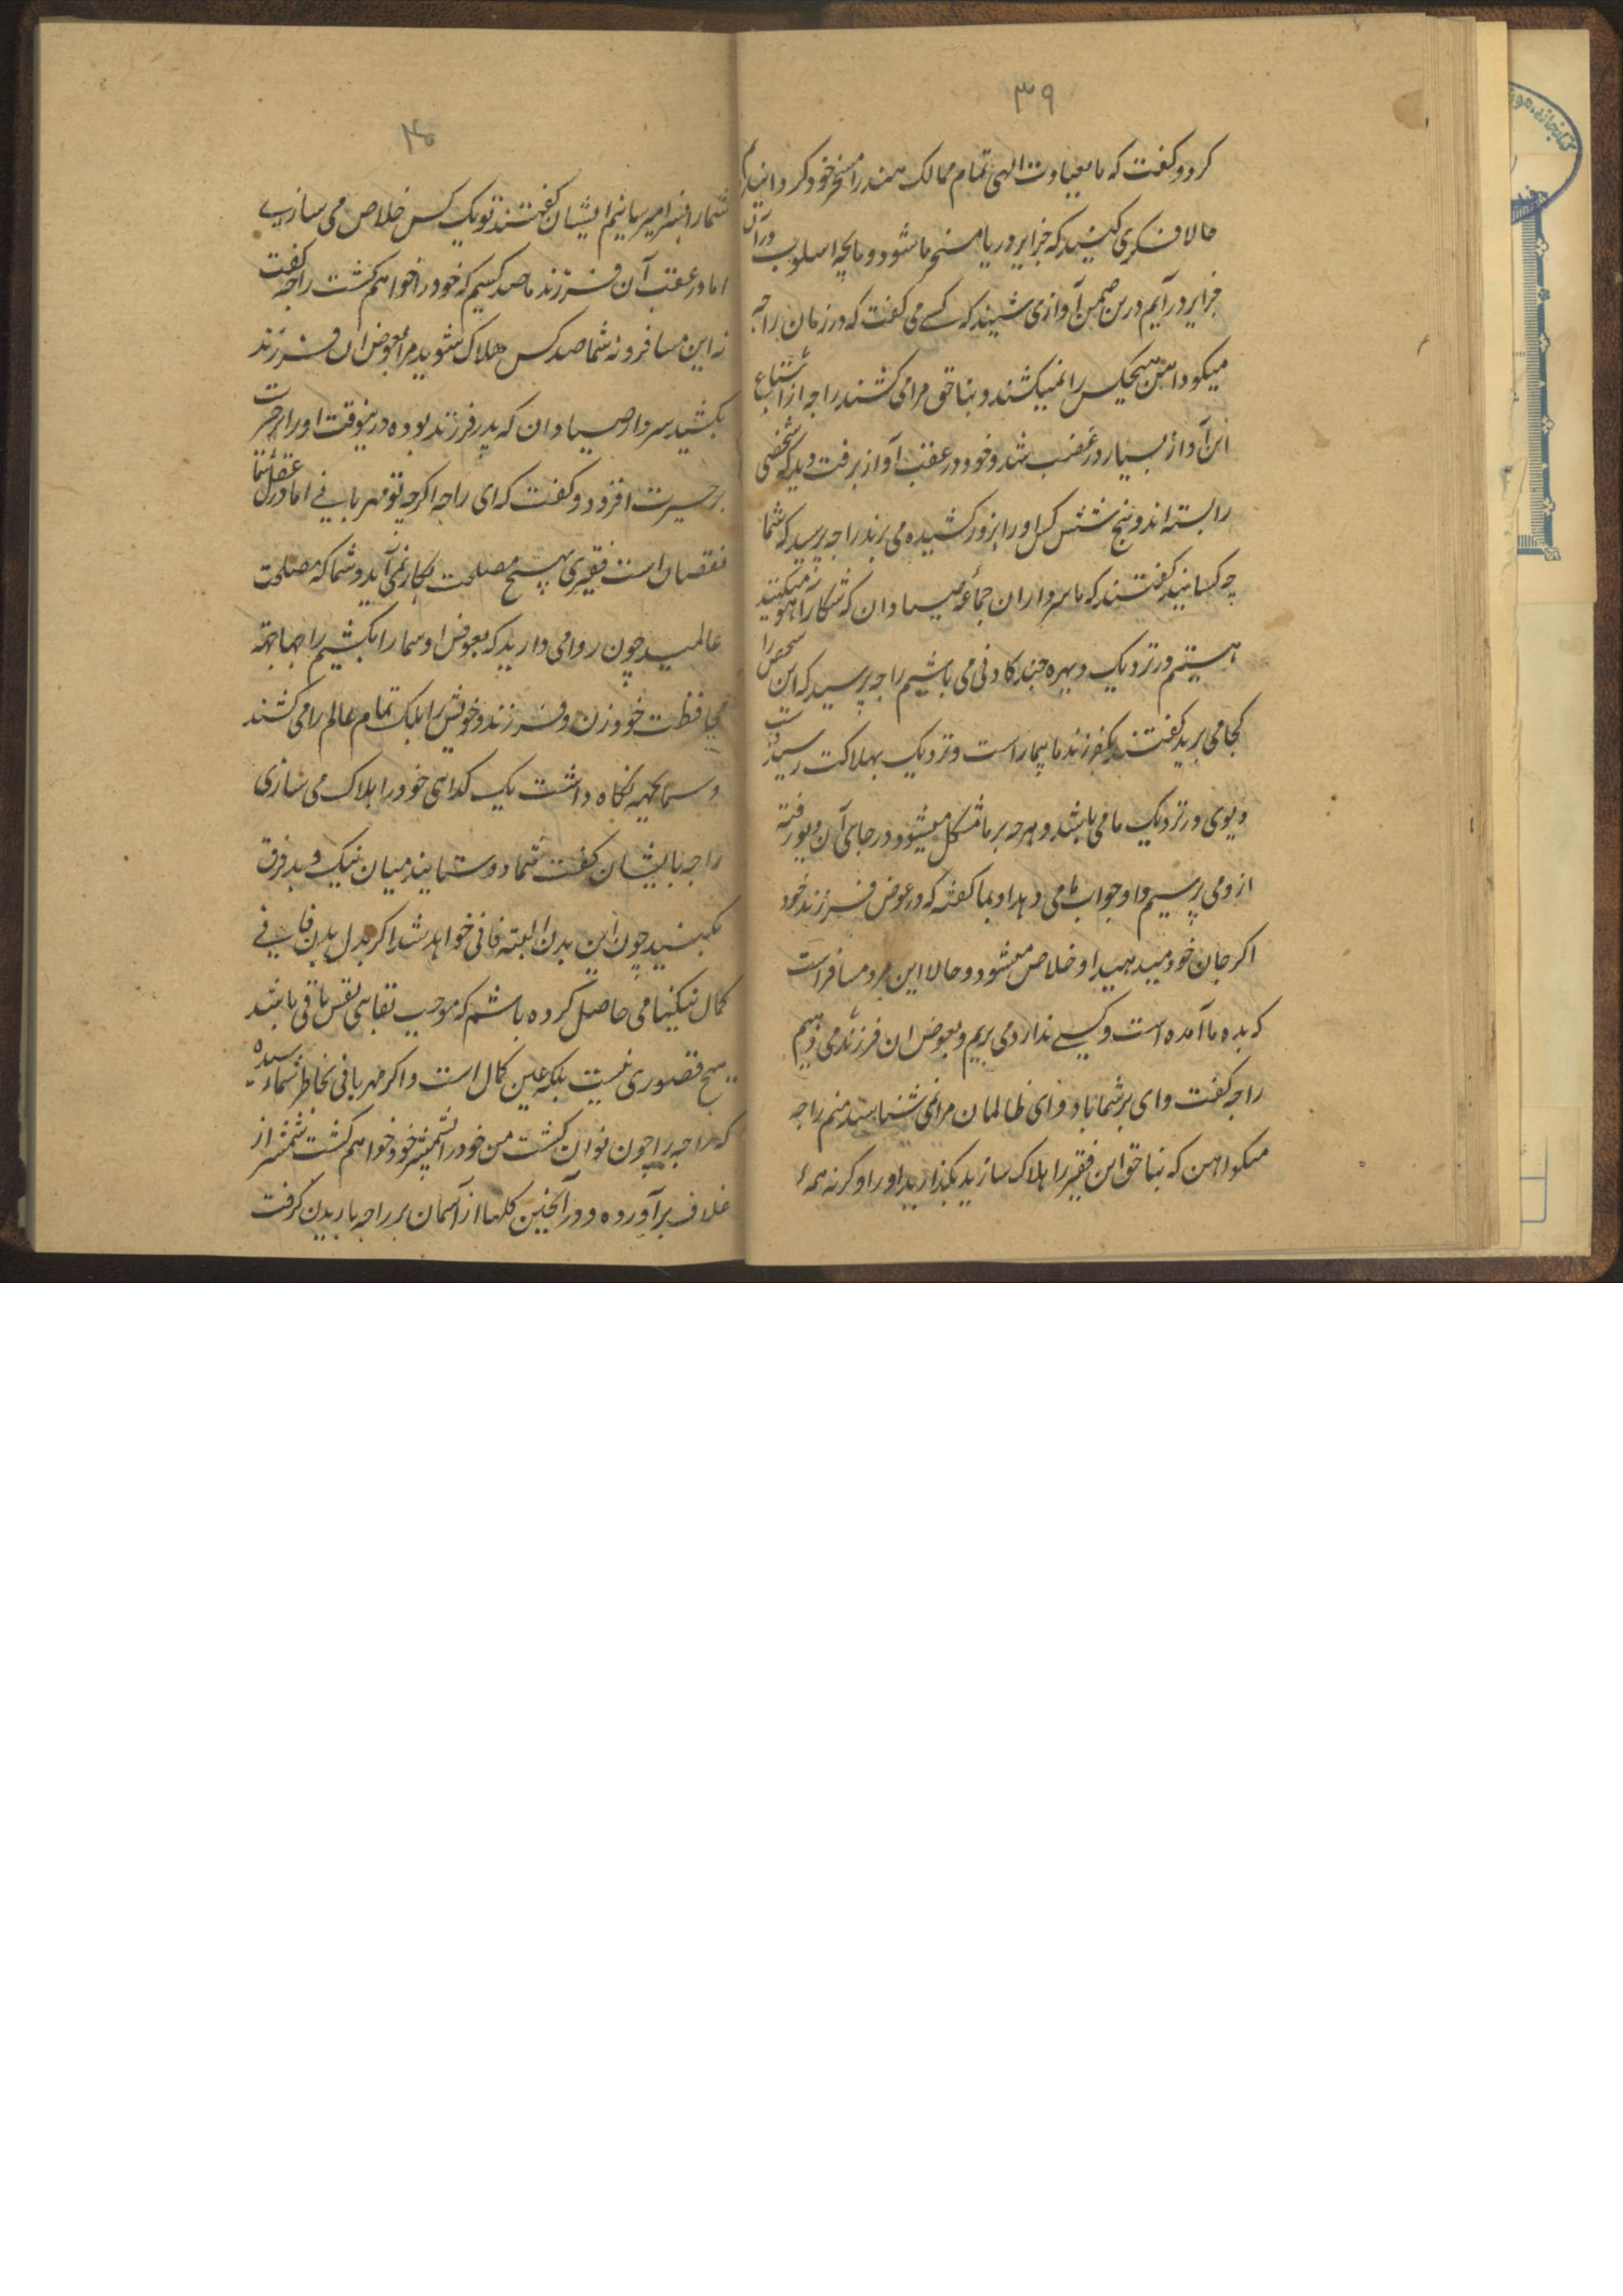 ۳۹
کرد و گفت که ما بعبادت الهی تمام ممالک هند را مسخر خود کردانیدیم
حالا فکری کنید که جزایر دریا مسخر ما شود و ما بچه اسلوب در آن
جزایر درآیم درین ضمن آوازی شنید که کسے می گفت که در زمان راجه
میکوداهن هیچکس را نمیکشند و بناحق مرا می کشند راجه از استماع
این آواز بسیار در غضب شد و خود در عقب آواز برفت دید که شخصی
را بسته اند و پنج شش کس او را بزور کشیده می برند راجه پرسید که شما
چه کسانید گفتند که ما سرداران جماعهٔ صیادان که شکار آهو میکنند
هستیم و نزدیک و بهره چند کا دنی می باشیم راجه پرسید که این شخص را
کجا می برید گفتند یکفرزند ما بیمار است و نزدیک بهلاکت رسیده است
و دیوی در نزدیک ما می باشد و هرچه بر ما مشکل میشود در جای آن دیو رفته
ازو می پرسیم و او جواب ما می دهد او بما گفته که در عوض فرزند خود
اکر جان خود میدهید او خلاص میشود و حالا این مرد مسافر است
که بده ما آمده است و کسے ندارد می بریم و بعوض ان فرزند می دهیم
راجه گفت وای بر شما باد و ای ظالمان مرا نمی شناسید منم راجه
میکوداهن که بناحق این فقیر را هلاک سازید بگذارید او را وکرنه همهٔ
۴۰
شما را بسزا میرسانیم ایشان گفتند تو یک کس خلاص می سازے
اما در عقب آن فرزند ما صد کسیم که خود را خواهم کشت راجه گفت
نه این مسافر و نه شما صد کس هلاک شوید مرا بعوض ان فرزند
بکشید سردار صیادان که پدر فرزند بوده درینوقت او را حیرت
بر حیرت افزود و گفت که ای راجه اکرچه تو مهربانے اما در عقل شما
نقصان است فقیری بهیچ مصلحت بکار نمی آید و شما که مصلحت
عالمید چون روا می دارید که بعوض او شما را بکشیم راجهها بجهة
محافظت خود و زن و فرزند و خویش را بلک تمام عالم را می کشند
و شما بجهة نکاه داشت یک کدائی خود را هلاک می سازی
راجه بایشان گفت شما دوستانید میان نیک و بد فرق
نکنید چون این بدن البته فانی خواهد شد اکر بدل بدن فانے
کمال نیکنامی حاصل کرده باشم که موجب بقای نفس باقی باشد
هیچ قصوری نیست بلکه عین کمال است و اکر مهربانی بخاطر شماء رسیده
که راجه را چون توان کشت من خود را بشمشیر خود خواهم کشت شمشیر از
غلاف برآورده و در آنحین کلها از آسمان بر راجه باریدن کرفت